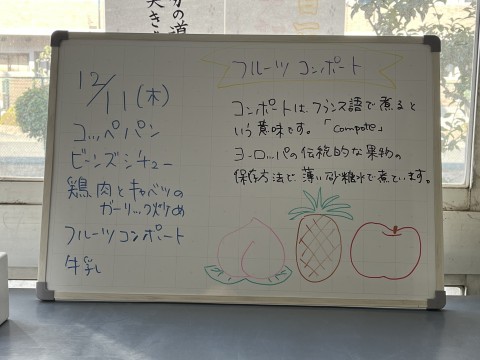 12/11(木)
コッペパン
ビーンズシチュー
鶏肉とキャベツの
ガーリック炒め
フルーツコンポート
牛乳
フルーツコンポート
コンポートは、フランス語で煮ると
いう意味です。「compote」
ヨーロッパの伝統的な果物の
保存方法で薄い砂糖水で煮ています。